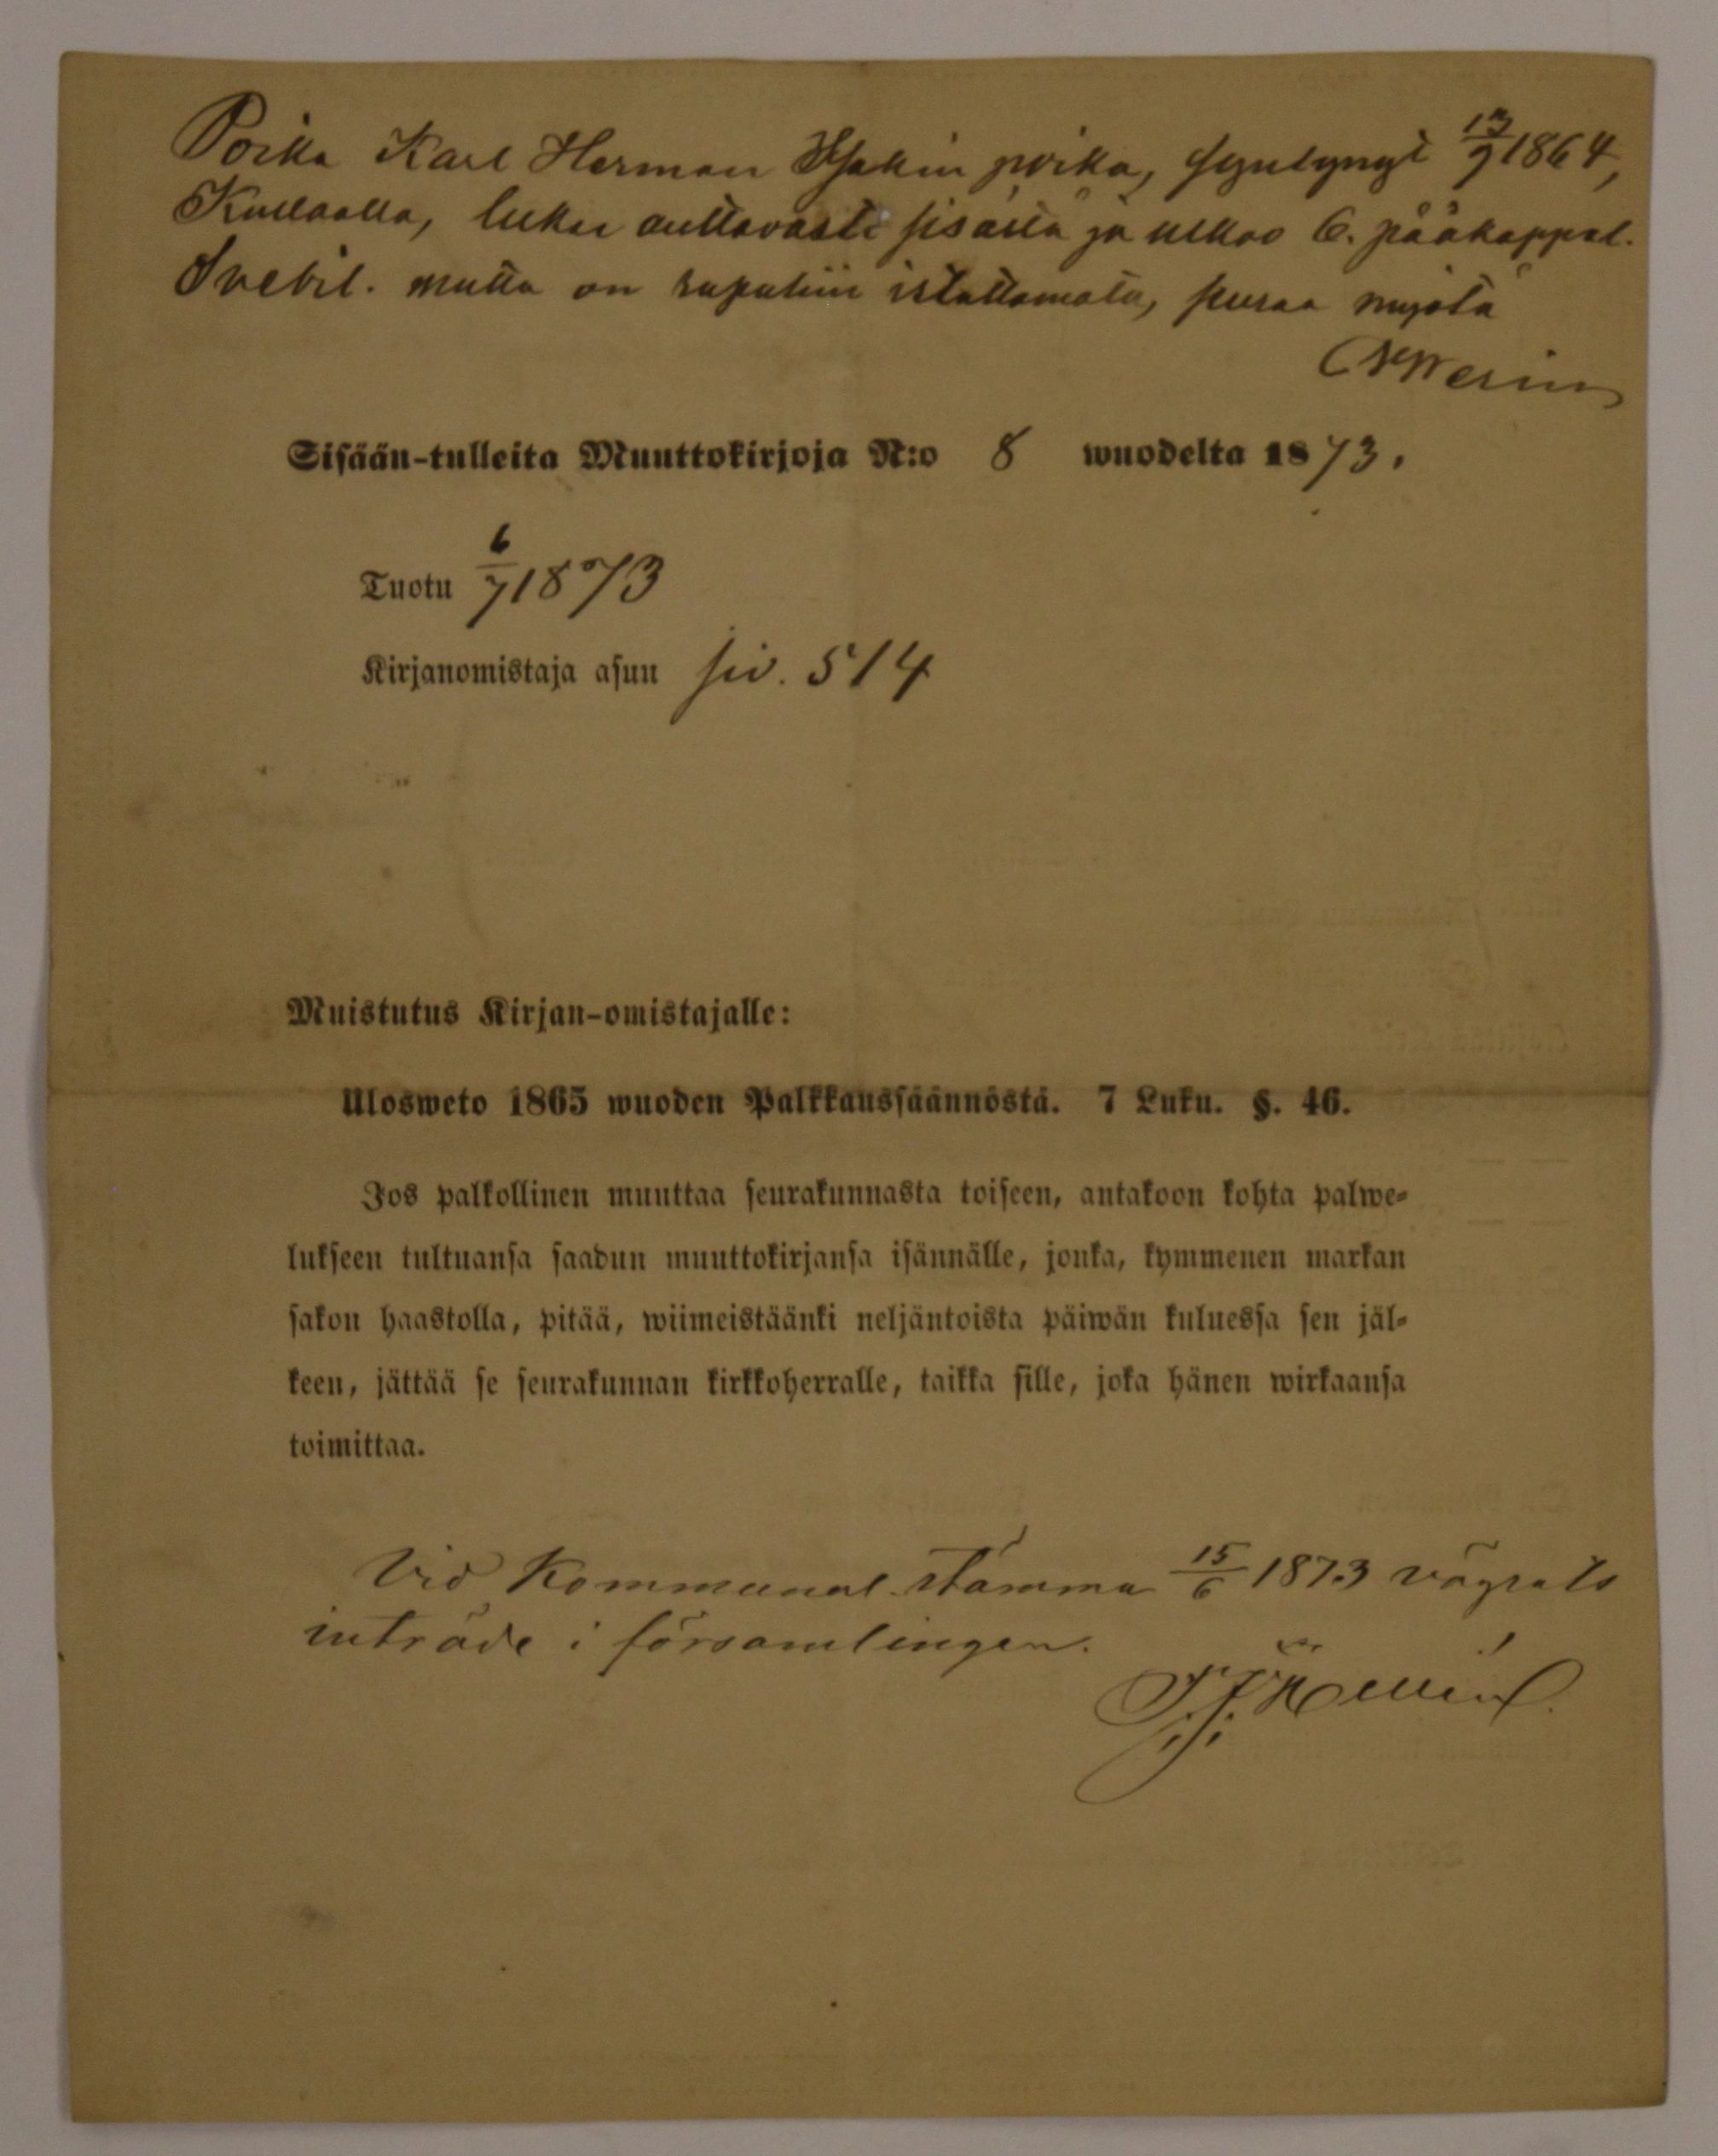 Poika Karl Herman Isakin poika, syntynyt 13/9 1864,
Kullaalla, lukee auttavasti sisältä ja ulkoo 6. pääkappal.
Svebil. mutta on rupuliin istuttamata, seuraa myötä
Sisään-tulleita Muuttokirjoja N:o 8 wuodelta 1873.
Tuotu 6/7 1873
Kirjanomistaja asuu siv. 514
Muistutus Kirjan-omistajalle:
Ulosweto 1865 wuoden Palkkaussäännöstä. 7 Luku. §. 46.
Jos palkollinen muuttaa seurakunnasta toiseen, antakoon kohta palwe-
lukseen tultuansa saadun muuttokirjansa isännälle, jonka, kymmenen markan
sakon haastolla, pitää, wiimeistäänki neljäntoista päiwän kuluessa sen jäl-
keen, jättää se seurakunnan kirkkoherralle, taikka sille, joka hänen wirkaansa
toimittaa.
Vid Kommunal-stämma 15/6 1873 vägrats
inträde i församlingen.